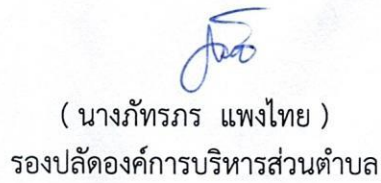 ( นางภัทรภร แพงไทย )
รองปลัดองค์การบริหารส่วนตำบล